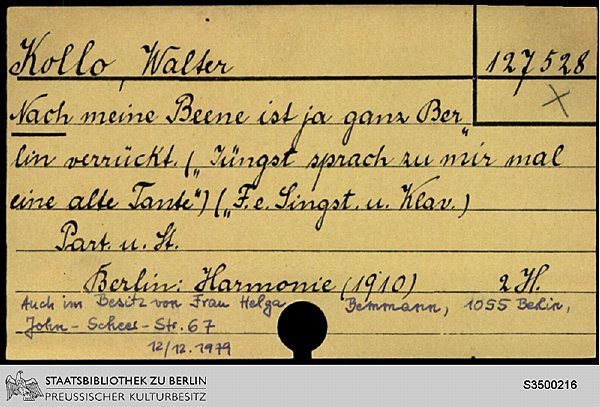 Kollo, Walter 127528
Nach meine Beene ist ja ganz Ber„
lin verrückt. („Jüngst sprach zu mir mal
eine alte Tante“) („F. e. Singst. u. Klav.)
Part. u. St.
Berlin: Harmonie (1910) 2 H.
Auch im Besitz von Frau Helga Bemmann, 1055 Berlin,
John-Scheer-Str. 67
12/12.1979
STAATSBIBLIOTHEK ZU BERLIN
PREUSSISCHER KULTURBESITZ
S3500216